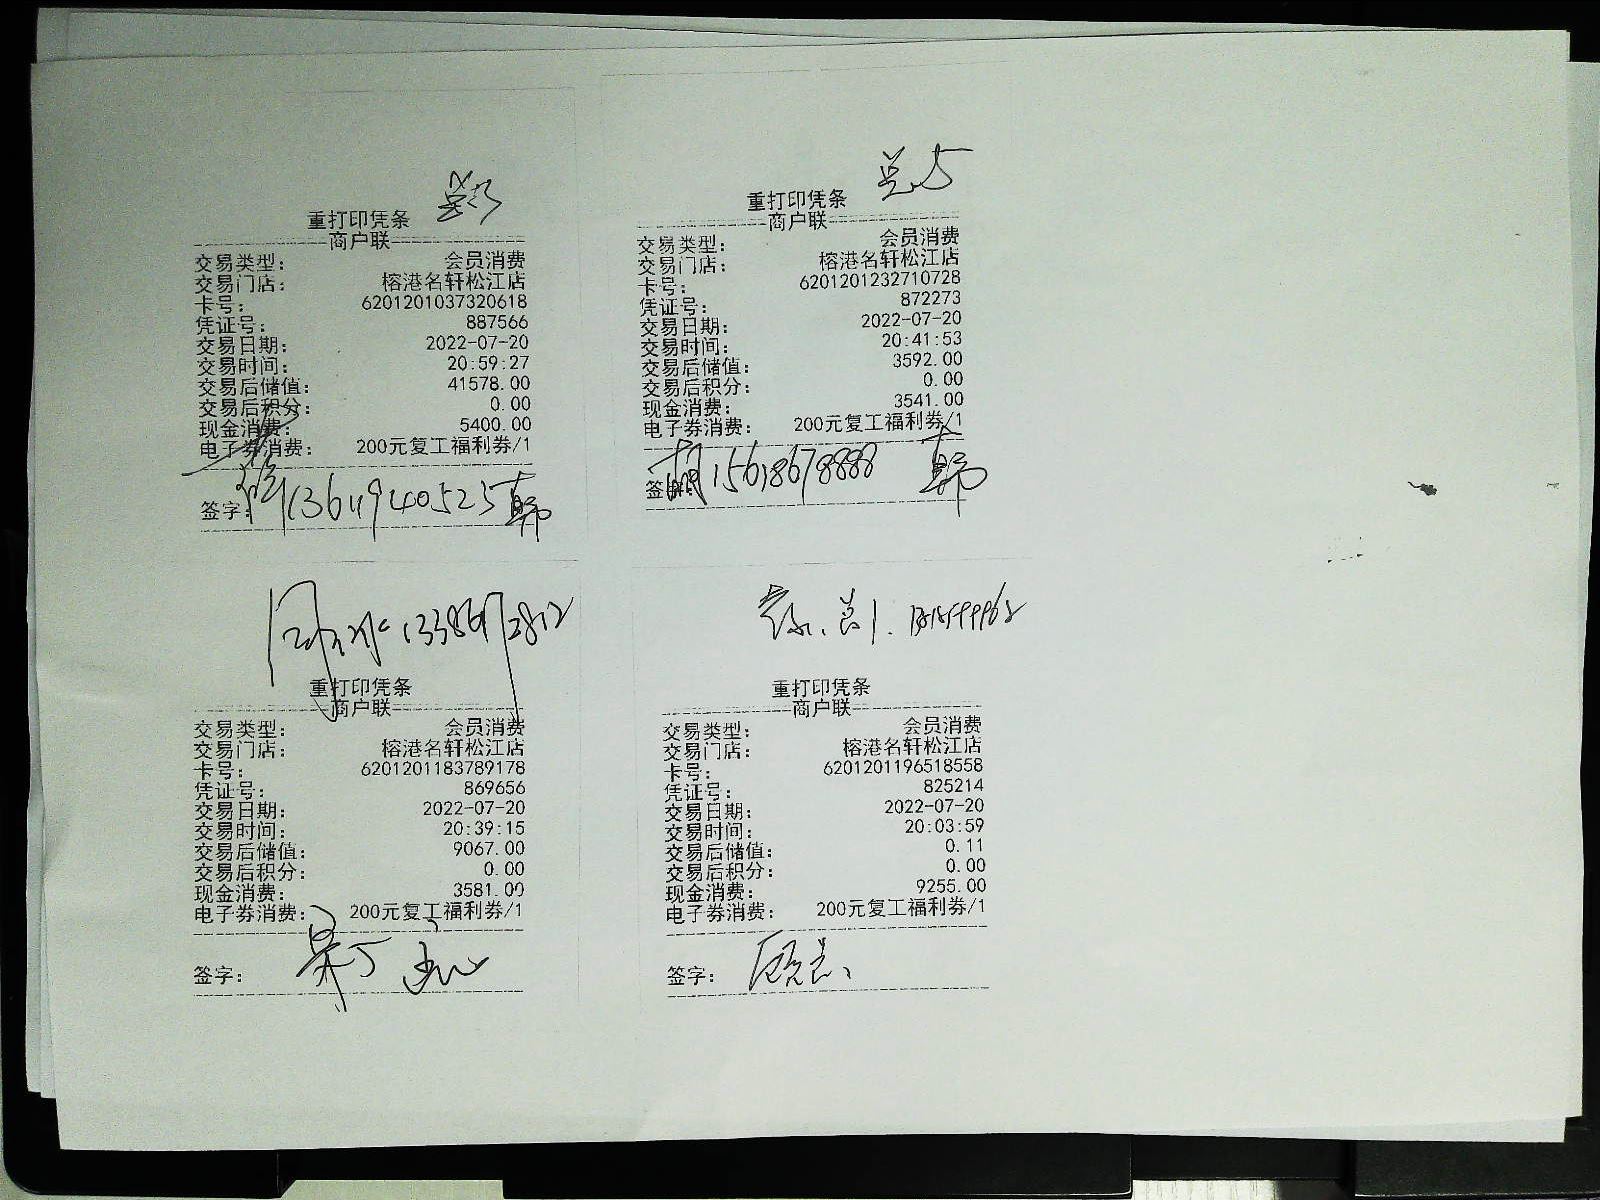 重打印凭条
商户联
交易类型： 会员消费
交易门店： 榕港名轩松江店
卡号： 6201201037320618
凭证号： 887566
交易日期： 2022-07-20
交易时间： 20:59:27
交易后储值： 41578.00
交易后积分： 0.00
现金消费： 5400.00
电子券消费： 200元复工福利券/1
签字： 13611940525
重打印凭条
商户联
交易类型： 会员消费
交易门店： 榕港名轩松江店
卡号： 6201201232710728
凭证号： 872273
交易日期： 2022-07-20
交易时间： 20:41:53
交易后储值： 3592.00
交易后积分： 0.00
现金消费： 3541.00
电子券消费： 200元复工福利券/1
签字： 15618678888
重打印凭条
商户联
交易类型： 会员消费
交易门店： 榕港名轩松江店
卡号： 6201201183789178
凭证号： 869656
交易日期： 2022-07-20
交易时间： 20:39:15
交易后储值： 9067.00
交易后积分： 0.00
现金消费： 3581.00
电子券消费： 200元复工福利券/1
签字：
重打印凭条
商户联
交易类型： 会员消费
交易门店： 榕港名轩松江店
卡号： 6201201196518558
凭证号： 825214
交易日期： 2022-07-20
交易时间： 20:03:59
交易后储值： 0.11
交易后积分： 0.00
现金消费： 9255.00
电子券消费： 200元复工福利券/1
签字：